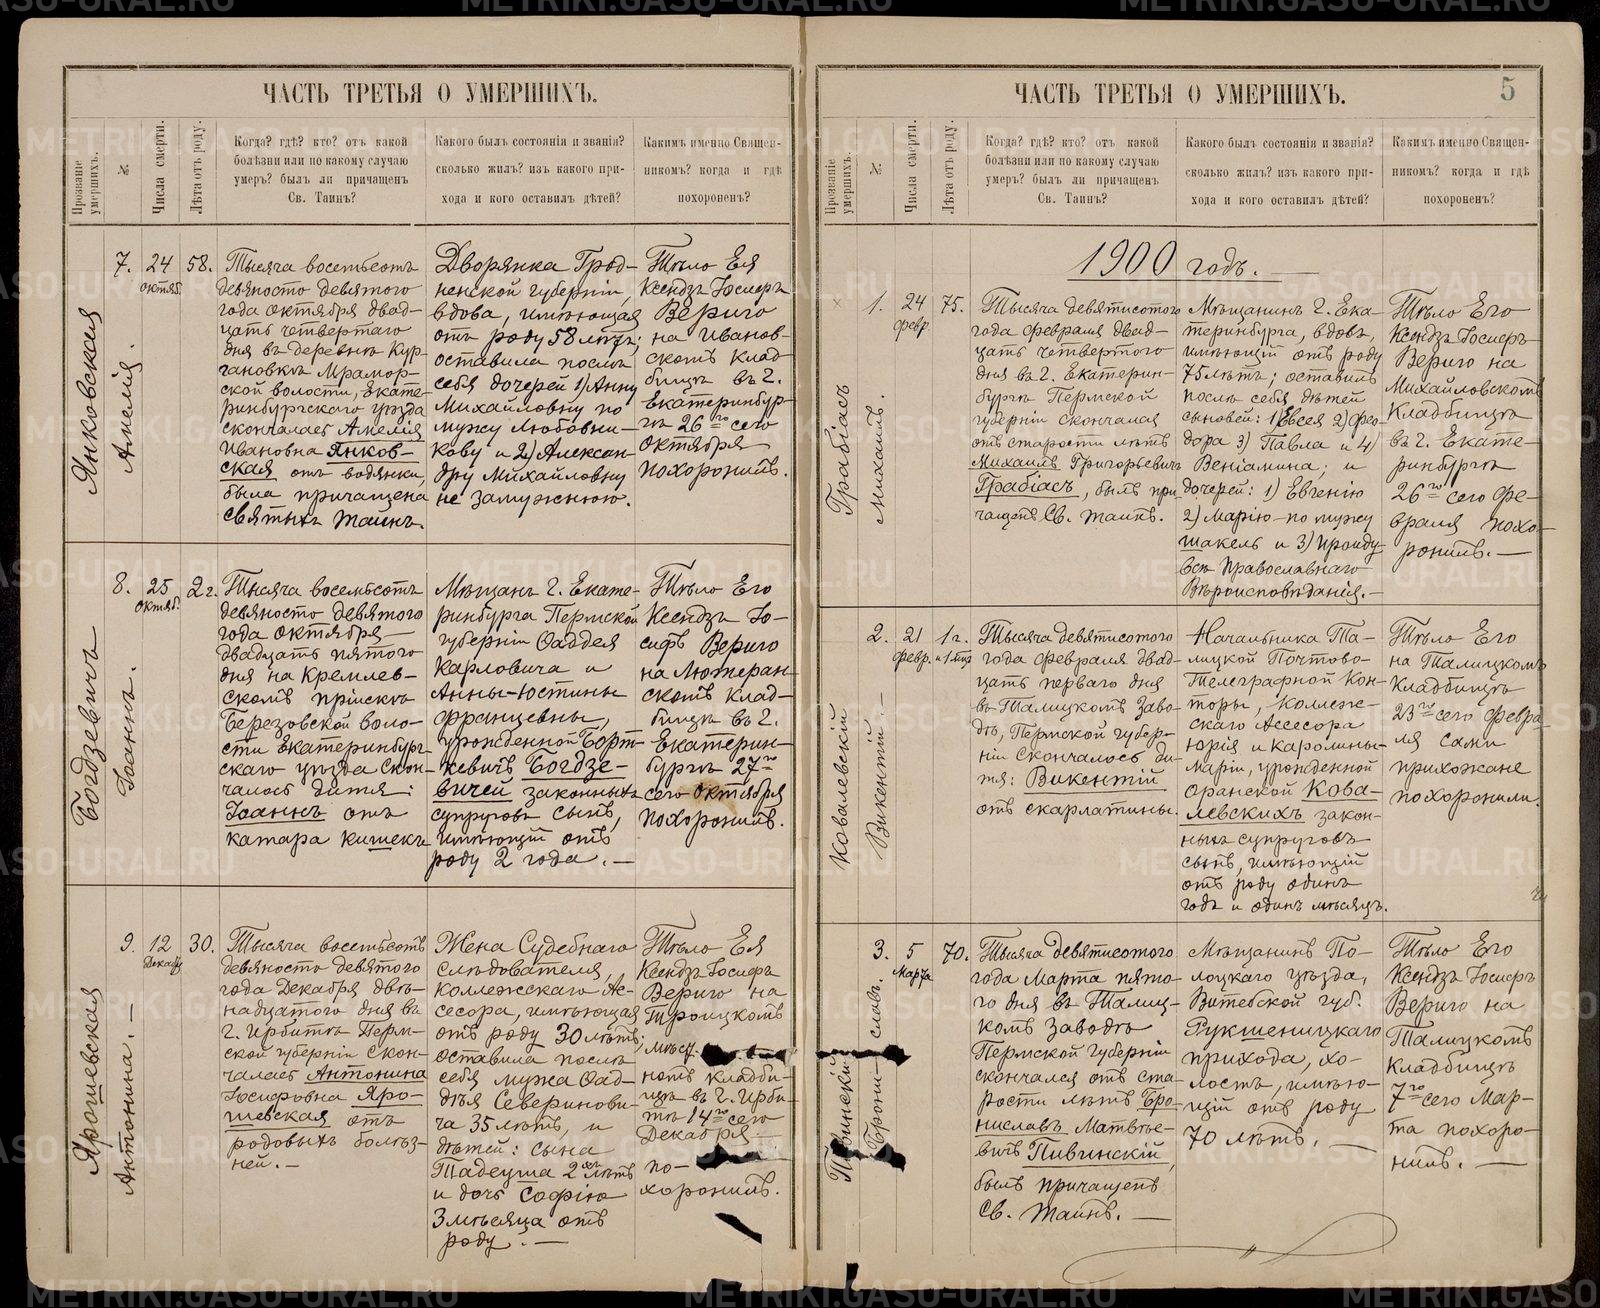 ЧАСТЬ ТРЕТЬЯ О УМЕРШИХЪ.
Прозваніе умершихъ.
№.
Числа смерти.
Лѣта отъ роду.
Когда? гдѣ? кто? отъ какой
болѣзни или по какому случаю
умеръ? былъ ли причащенъ
Св. Таинъ?
Какого былъ состоянія и званія?
сколько жилъ? изъ какого при-
хода и кого оставилъ дѣтей?
Какимъ именно Священ-
никомъ? когда и гдѣ
похороненъ?
Янковская
Амелія.
7.
24
октяб.
58.
Тысяча восемьсотъ
девяносто девятого
года октября двад-
цать четвертаго
дня въ деревнѣ Кур-
гановкѣ Мрамор-
ской волости, Екате-
ринбургскаго уѣзда
скончалась Амелія
Ивановна Янков-
ская отъ водянки,
была причащена
святыхъ таинъ.
Дворянка Грод-
ненской губерніи,
вдова, имѣющая
отъ роду 58 лѣтъ;
оставила послѣ
себя дочерей 1) Анну
Михайловну по
мужу Любовни-
кову и 2) Алексан-
дру Михайловну
не замужнюю.
Тѣло Ея
Ксендзъ Іосифъ
Вериго
на Иванов-
скомъ клад-
бищѣ въ г.
Екатеринбур-
гѣ 26го сего
октября
похоронилъ.
Богдзевичъ
Іоаннъ.
8.
25
октяб.
2 г.
Тысяча восемьсотъ
девяносто девятого
года октября
двадцать пятого
дня на Кремлев-
скомъ пріискѣ
Березовской воло-
сти Екатеринбург-
скаго уѣзда скон-
чалось дитя:
Іоаннъ отъ
катара кишекъ
Мѣщанъ г. Екате-
ринбурга Пермской
губерніи Фаддея
Карловича и
Анны-Юстины
Францевны,
урожденной Борт-
кевичъ Богдзе-
вичей законныхъ
супруговъ сынъ,
имѣющій отъ
роду 2 года. —
Тѣло Его
Ксендзъ Іо-
сифъ Вериго
на Лютеран-
скомъ клад-
бищѣ въ г.
Екатерин-
бургѣ 27го
сего октября
похоронилъ.
Ярошевская
Антонина. —
9.
12
Декабр
30.
Тысяча восемьсотъ
девяносто девятого
года Декабря двѣ-
надцатого дня въ
г. Ирбитѣ Перм-
ской губерніи скон-
чалась Антонина
Іосифовна Яро-
шевская отъ
родовыхъ болѣз-
ней. —
Жена Судебнаго
слѣдователя,
коллежскаго Ас-
сесора, имѣющая
отъ роду 30 лѣтъ;
оставила послѣ
себя мужа Фад-
дѣя Северинови-
ча 35 лѣтъ, и
дѣтей: сына
Тадеуша 2хъ лѣтъ
и дочь Софію
3 мѣсяца отъ
роду. —
Тѣло Ея
Ксендзъ Іосифъ
Вериго на
Троицкомъ
номъ кладби-
щѣ въ г. Ирби-
тѣ 14го сего
Декабря
по-
хоронилъ.
ЧАСТЬ ТРЕТЬЯ О УМЕРШИХЪ.
5
Прозваніе умершихъ.
№.
Числа смерти.
Лѣта отъ роду.
Когда? гдѣ? кто? отъ какой
болѣзни или по какому случаю
умеръ? былъ ли причащенъ
Св. Таинъ?
Какого былъ состоянія и званія?
сколько жилъ? изъ какого при-
хода и кого оставилъ дѣтей?
Какимъ именно Священ-
никомъ? когда и гдѣ
похороненъ?
1900 годъ. —
Грабіасъ
Михаилъ.
1.
24
февр.
75.
Тысяча девятисотого
года февраля двад-
цать четвертого
дня въ г. Екатерин-
бургѣ Пермской
губерніи скончался
отъ старости лѣтъ
Михаилъ Григорьевичъ
Грабіасъ, былъ при-
чащенъ Св. Таинъ.
Мѣщанинъ г. Ека-
теринбурга, вдовъ,
имѣющій отъ роду
75 лѣтъ; оставилъ
послѣ себя дѣтей
сыновей: 1) Евсея 2) Фео-
дора 3) Павла и 4)
Веніамина; и
дочерей: 1) Евгенію
2) Марію по мужу
Шакель и 3)
всѣ православнаго
Вѣроисповѣданія. —
Тѣло Его
Ксендзъ Іосифъ
Вериго на
Михайловскомъ
Кладбищѣ
въ г. Екате-
ринбургѣ
26го сего фе-
враля похо-
ронилъ. —
Ковалевскій
Викентій. —
2.
21
февр.
1 г.
и 1 мѣс
Тысяча девятисотого
года февраля двад-
цать перваго дня
въ Талицкомъ Заво-
дѣ, Пермской губер-
ніи скончалось ди-
тя: Викентій
отъ скарлатины.
Начальника Та-
лицкой Почтово-
Телеграфной Кон-
торы, Коллеж-
скаго Ассесора
Юрія и Каролины-
Маріи, урожденной
Оранской Кова-
левскихъ закон-
ныхъ супруговъ
сынъ, имѣющій
отъ роду одинъ
годъ и одинъ мѣсяцъ.
Тѣло Его
на Талицкомъ
Кладбищѣ
23го сего Февра-
ля сами
прихожане
похоронили.
Пивинскій
Брони-
славъ.
3.
5
Марта
70.
Тысяча девятисотого
года Марта пято-
го дня въ Талиц-
комъ Заводѣ
Пермской губерніи
скончался отъ ста-
рости лѣтъ Бро-
ниславъ Матвѣе-
вичъ Пивинскій,
былъ причащенъ
Св. Таинъ. —
Мѣщанинъ По-
лоцкаго уѣзда,
Витебской губ.
Рукшеницкаго
прихода, хо-
лостъ, имѣю-
щій отъ роду
70 лѣтъ. —
Тѣло Его
Ксендзъ Іосифъ
Вериго на
Талицкомъ
Кладбищѣ
7го сего Мар-
та похоро-
нилъ. —
METRIKI.GASO-URAL.RU